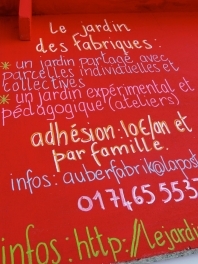 Le jardin
des fabriques :
* un jardin partagé avec
parcelles individuelles et
collectives
* un jardin expérimental et
pédagogique (ateliers)
adhésion : 10€/an et
par famille.
infos : auberfabrik@lapost
01 7465 5537
infos : http://lejardin